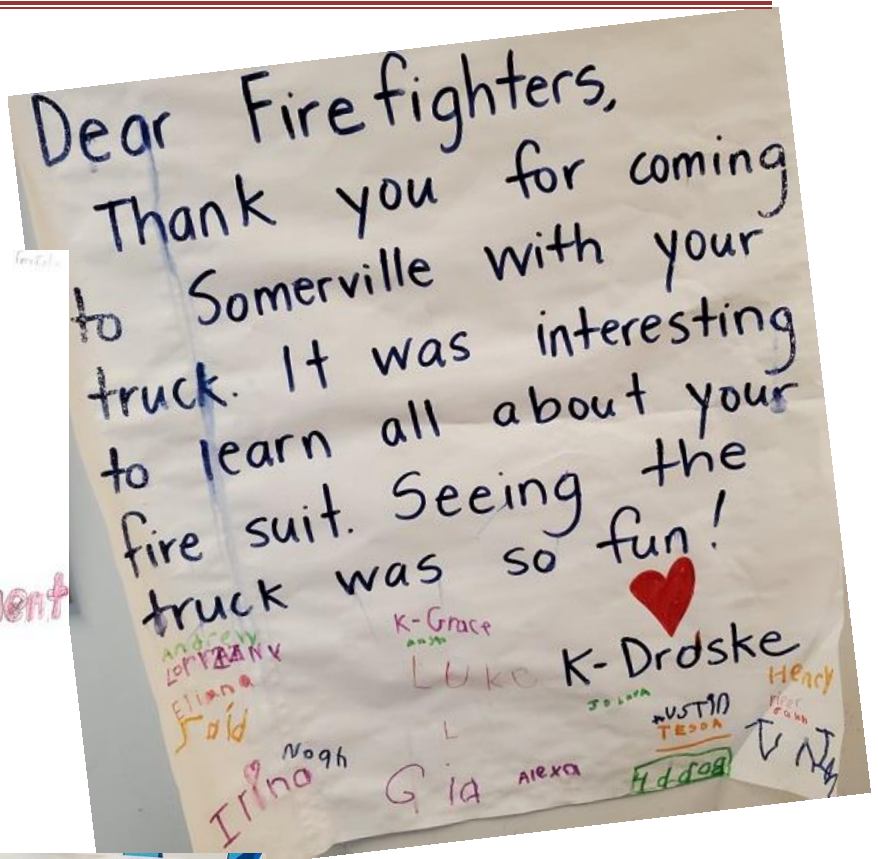 Dear Firefighters,
Thank you for coming
to Somerville with your
truck. It was interesting
to learn all about your
fire suit. Seeing the
truck was so fun!
K-Drdske
K-Grace
Andrew
Eliana
LUKe
L
Henry
AUSTIN
TESSA
Noah
Irina
Gia
Alexa
ent